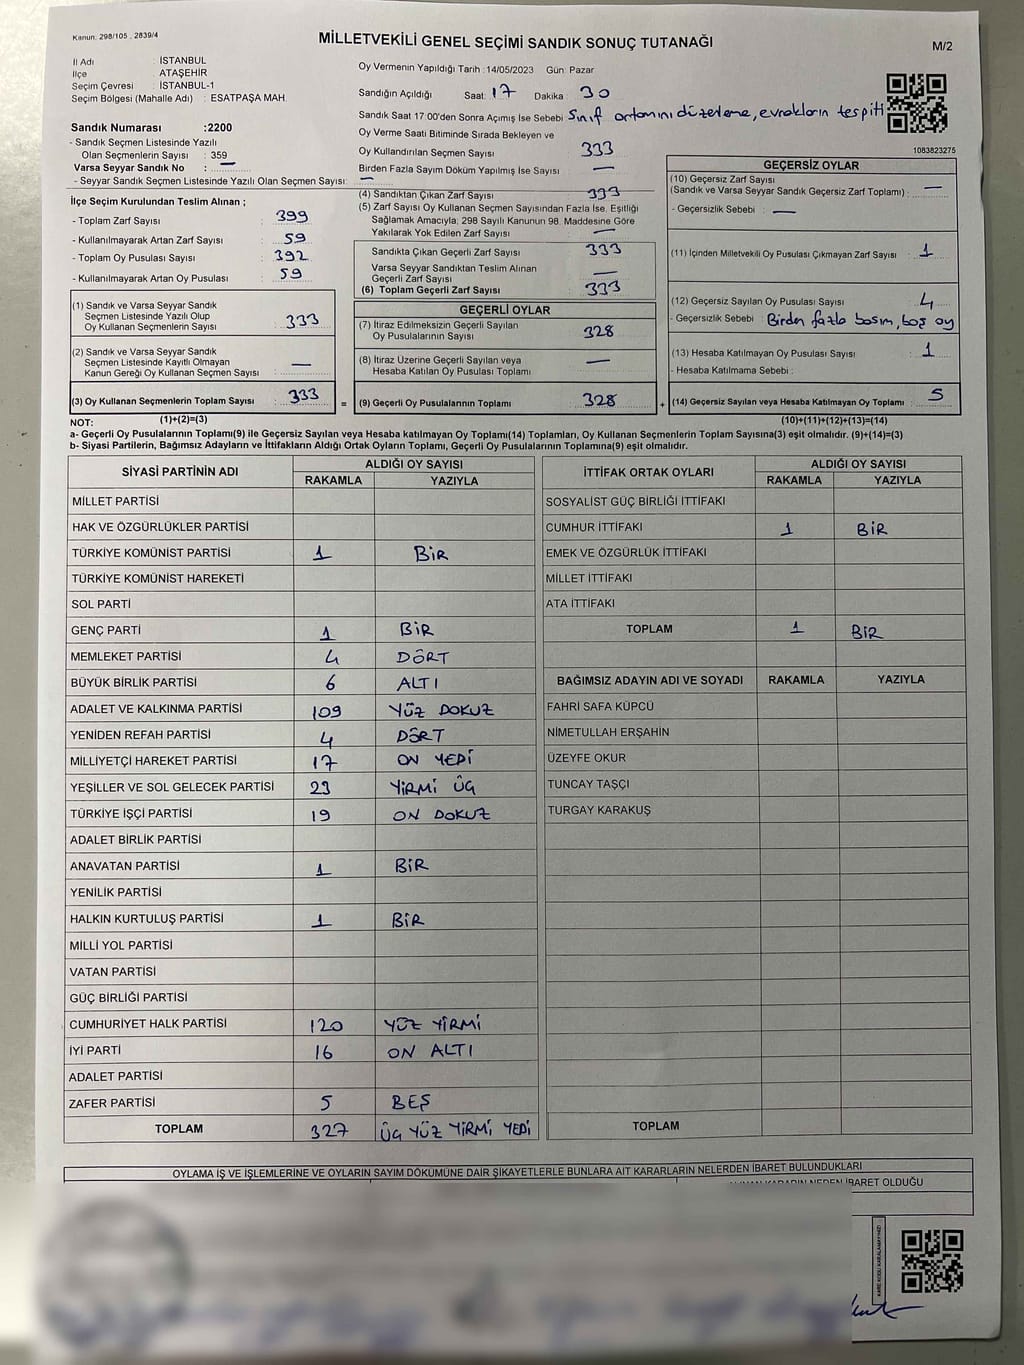 Kanun: 298/105 , 2839/4
MİLLETVEKİLİ GENEL SEÇİMİ SANDIK SONUÇ TUTANAĞI
M/2
İl Adı : İSTANBUL
İlçe : ATAŞEHİR
Seçim Çevresi : İSTANBUL-1
Seçim Bölgesi (Mahalle Adı) : ESATPAŞA MAH.
Oy Vermenin Yapıldığı Tarih :14/05/2023 Gün: Pazar
Sandığın Açıldığı Saat: 17 Dakika : 30
Sandık Saat 17:00'den Sonra Açımış İse Sebebi Sınıf ortamını düzenleme, evrakların tespiti
Oy Verme Saati Bitiminde Sırada Bekleyen ve
Oy Kullandırılan Seçmen Sayısı : 333
Birden Fazla Sayım Döküm Yapılmış İse Sayısı : —
1083823275
Sandık Numarası :2200
- Sandık Seçmen Listesinde Yazılı
Olan Seçmenlerin Sayısı : 359
Varsa Seyyar Sandık No : —
- Seyyar Sandık Seçmen Listesinde Yazılı Olan Seçmen Sayısı: —
İlçe Seçim Kurulundan Teslim Alınan ;
- Toplam Zarf Sayısı : 399
- Kullanılmayarak Artan Zarf Sayısı : 59
- Toplam Oy Pusulası Sayısı : 392
- Kullanılmayarak Artan Oy Pusulası : 59
(1) Sandık ve Varsa Seyyar Sandık
Seçmen Listesinde Yazılı Olup
Oy Kullanan Seçmenlerin Sayısı : 333
(2) Sandık ve Varsa Seyyar Sandık
Seçmen Listesinde Kayıtlı Olmayan
Kanun Gereği Oy Kullanan Seçmen Sayısı : —
(3) Oy Kullanan Seçmenlerin Toplam Sayısı : 333 =
(1)+(2)=(3)
(4) Sandıktan Çıkan Zarf Sayısı : 333
(5) Zarf Sayısı Oy Kullanan Seçmen Sayısından Fazla İse, Eşitliği
Sağlamak Amacıyla; 298 Sayılı Kanunun 98. Maddesine Göre
Yakılarak Yok Edilen Zarf Sayısı : —
Sandıkta Çıkan Geçerli Zarf Sayısı : 333
Varsa Seyyar Sandıktan Teslim Alınan
Geçerli Zarf Sayısı : —
(6) Toplam Geçerli Zarf Sayısı : 333
GEÇERLİ OYLAR
(7) İtiraz Edilmeksizin Geçerli Sayılan
Oy Pusulalarının Sayısı : 328
(8) İtiraz Üzerine Geçerli Sayılan veya
Hesaba Katılan Oy Pusulası Toplamı : —
(9) Geçerli Oy Pusulalarının Toplamı : 328 +
GEÇERSİZ OYLAR
(10) Geçersiz Zarf Sayısı
(Sandık ve Varsa Seyyar Sandık Geçersiz Zarf Toplamı) : —
- Geçersizlik Sebebi : —
(11) İçinden Milletvekili Oy Pusulası Çıkmayan Zarf Sayısı : 1
(12) Geçersiz Sayılan Oy Pusulası Sayısı : 4
- Geçersizlik Sebebi : Birden fazla basım, boş oy
(13) Hesaba Katılmayan Oy Pusulası Sayısı : 1
- Hesaba Katılmama Sebebi :
(14) Geçersiz Sayılan veya Hesaba Katılmayan Oy Toplamı : 5
(10)+(11)+(12)+(13)=(14)
NOT:
a- Geçerli Oy Pusulalarının Toplamı(9) ile Geçersiz Sayılan veya Hesaba katılmayan Oy Toplamı(14) Toplamları, Oy Kullanan Seçmenlerin Toplam Sayısına(3) eşit olmalıdır. (9)+(14)=(3)
b- Siyasi Partilerin, Bağımsız Adayların ve İttifakların Aldığı Ortak Oyların Toplamı, Geçerli Oy Pusulalarının Toplamına(9) eşit olmalıdır.
SİYASİ PARTİNİN ADI
ALDIĞI OY SAYISI
RAKAMLA YAZIYLA
MİLLET PARTİSİ
HAK VE ÖZGÜRLÜKLER PARTİSİ
TÜRKİYE KOMÜNİST PARTİSİ 1 BİR
TÜRKİYE KOMÜNİST HAREKETİ
SOL PARTİ
GENÇ PARTİ 1 BİR
MEMLEKET PARTİSİ 4 DÖRT
BÜYÜK BİRLİK PARTİSİ 6 ALTI
ADALET VE KALKINMA PARTİSİ 109 YÜZ DOKUZ
YENİDEN REFAH PARTİSİ 4 DÖRT
MİLLİYETÇİ HAREKET PARTİSİ 17 ON YEDİ
YEŞİLLER VE SOL GELECEK PARTİSİ 23 YİRMİ ÜÇ
TÜRKİYE İŞÇİ PARTİSİ 19 ON DOKUZ
ADALET BİRLİK PARTİSİ
ANAVATAN PARTİSİ 1 BİR
YENİLİK PARTİSİ
HALKIN KURTULUŞ PARTİSİ 1 BİR
MİLLİ YOL PARTİSİ
VATAN PARTİSİ
GÜÇ BİRLİĞİ PARTİSİ
CUMHURİYET HALK PARTİSİ 120 YÜZ YİRMİ
İYİ PARTİ 16 ON ALTI
ADALET PARTİSİ
ZAFER PARTİSİ 5 BEŞ
TOPLAM 327 ÜÇ YÜZ YİRMİ YEDİ
İTTİFAK ORTAK OYLARI
ALDIĞI OY SAYISI
RAKAMLA YAZIYLA
SOSYALİST GÜÇ BİRLİĞİ İTTİFAKI
CUMHUR İTTİFAKI 1 BİR
EMEK VE ÖZGÜRLÜK İTTİFAKI
MİLLET İTTİFAKI
ATA İTTİFAKI
TOPLAM 1 BİR
BAĞIMSIZ ADAYIN ADI VE SOYADI RAKAMLA YAZIYLA
FAHRİ SAFA KÜPCÜ
NİMETULLAH ERŞAHİN
ÜZEYFE OKUR
TUNCAY TAŞÇI
TURGAY KARAKUŞ
TOPLAM
OYLAMA İŞ VE İŞLEMLERİNE VE OYLARIN SAYIM DÖKÜMÜNE DAİR ŞİKAYETLERLE BUNLARA AİT KARARLARIN NELERDEN İBARET BULUNDUKLARI
ALINAN KARARIN NEDEN İBARET OLDUĞU
KARE KODU KARALAMAYINIZ!